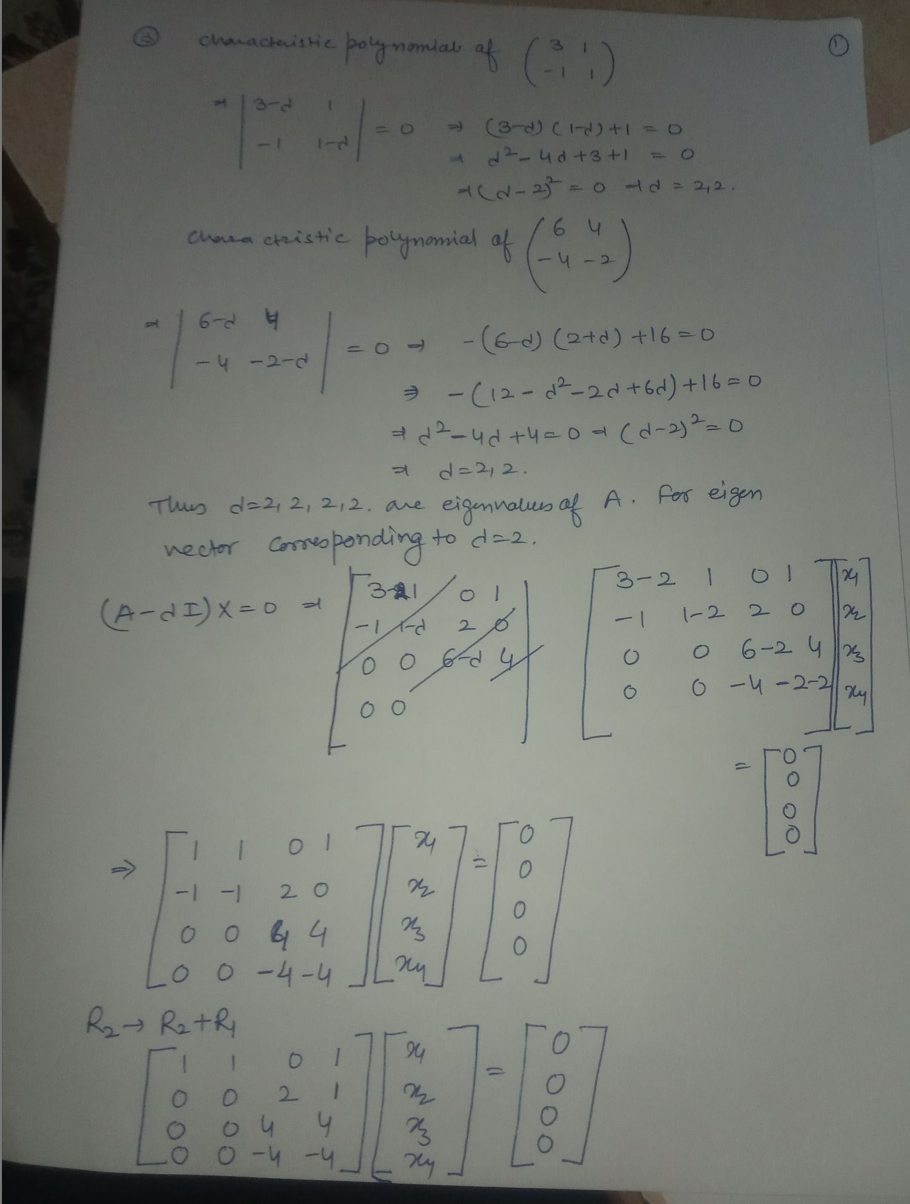 ③ characteristic polynomial of (3 1 ①
-1 1)
⇒ |3-d 1
-1 1-d| = 0 ⇒ (3-d)(1-d)+1 = 0
⇒ d²-4d+3+1 = 0
⇒ (d-2)² = 0 ⇒ d = 2,2.
characteristic polynomial of (6 4
-4 -2)
⇒ |6-d 4
-4 -2-d| = 0 ⇒ -(6-d)(2+d)+16=0
⇒ -(12-d²-2d+6d)+16=0
⇒ d²-4d+4=0 ⇒ (d-2)²=0
⇒ d=2,2.
Thus d=2,2,2,2. are eigenvalues of A. For eigen
vector corresponding to d=2.
(A-dI)X=0 ⇒ [3-2 1 0 1
-1 1-d 2 0
0 0 6-d 4
0 0]
[3-2 1 0 1
-1 1-2 2 0
0 0 6-2 4
0 0 -4 -2-2] [x1
x2
x3
x4]
= [0
0
0
0]
⇒ [1 1 0 1] [x1] = [0]
[-1 -1 2 0] [x2] [0]
[0 0 4 4] [x3] [0]
[0 0 -4 -4] [x4] [0]
R2→ R2+R1
[1 1 0 1] [x1] = [0]
[0 0 2 1] [x2] [0]
[0 0 4 4] [x3] [0]
[0 0 -4 -4] [x4] [0]